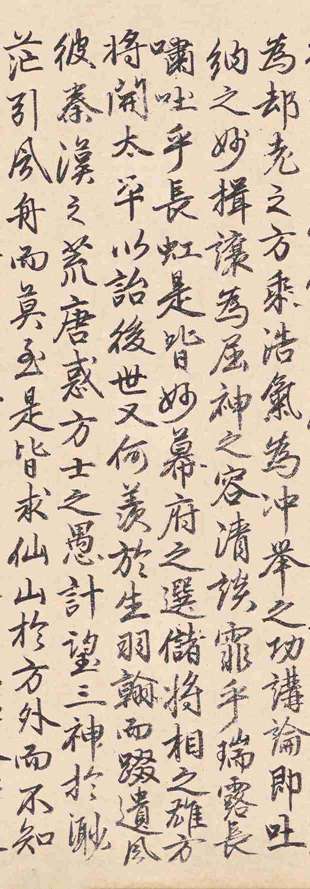 為却老之方乘浩氣為冲舉之功講論即吐
納之妙揖讓為屈神之容清談霏乎瑞露長
嘯吐乎長虹是皆妙幕府之選儲將相之雄方
將開太平以詒後世又何羨於生羽翰而躡遺風
彼秦漢之荒唐惑方士之愚計望三神於渺
茫引風舟而莫至是皆求仙山於方外而不知